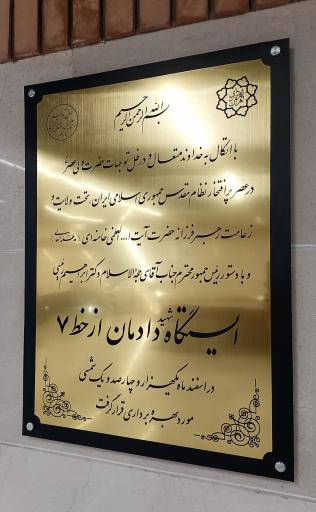 بسم الله الرحمن الرحیم
با اتکال به خداوند متعال و در ظل توجهات حضرت ولی عصر
در عصر پر افتخار نظام مقدس جمهوری اسلامی ایران تحت ولایت و
زعامت رهبر فرزانه حضرت آیت ا... العظمی خامنه ای
و با دستور رئیس جمهور محترم جناب آقای حجة الاسلام دکتر ابراهیم رئیسی
ایستگاه شهید دادمان از خط ۷
در اسفند ماه یکهزار و چهارصد و یک شمسی
مورد بهره برداری قرار گرفت